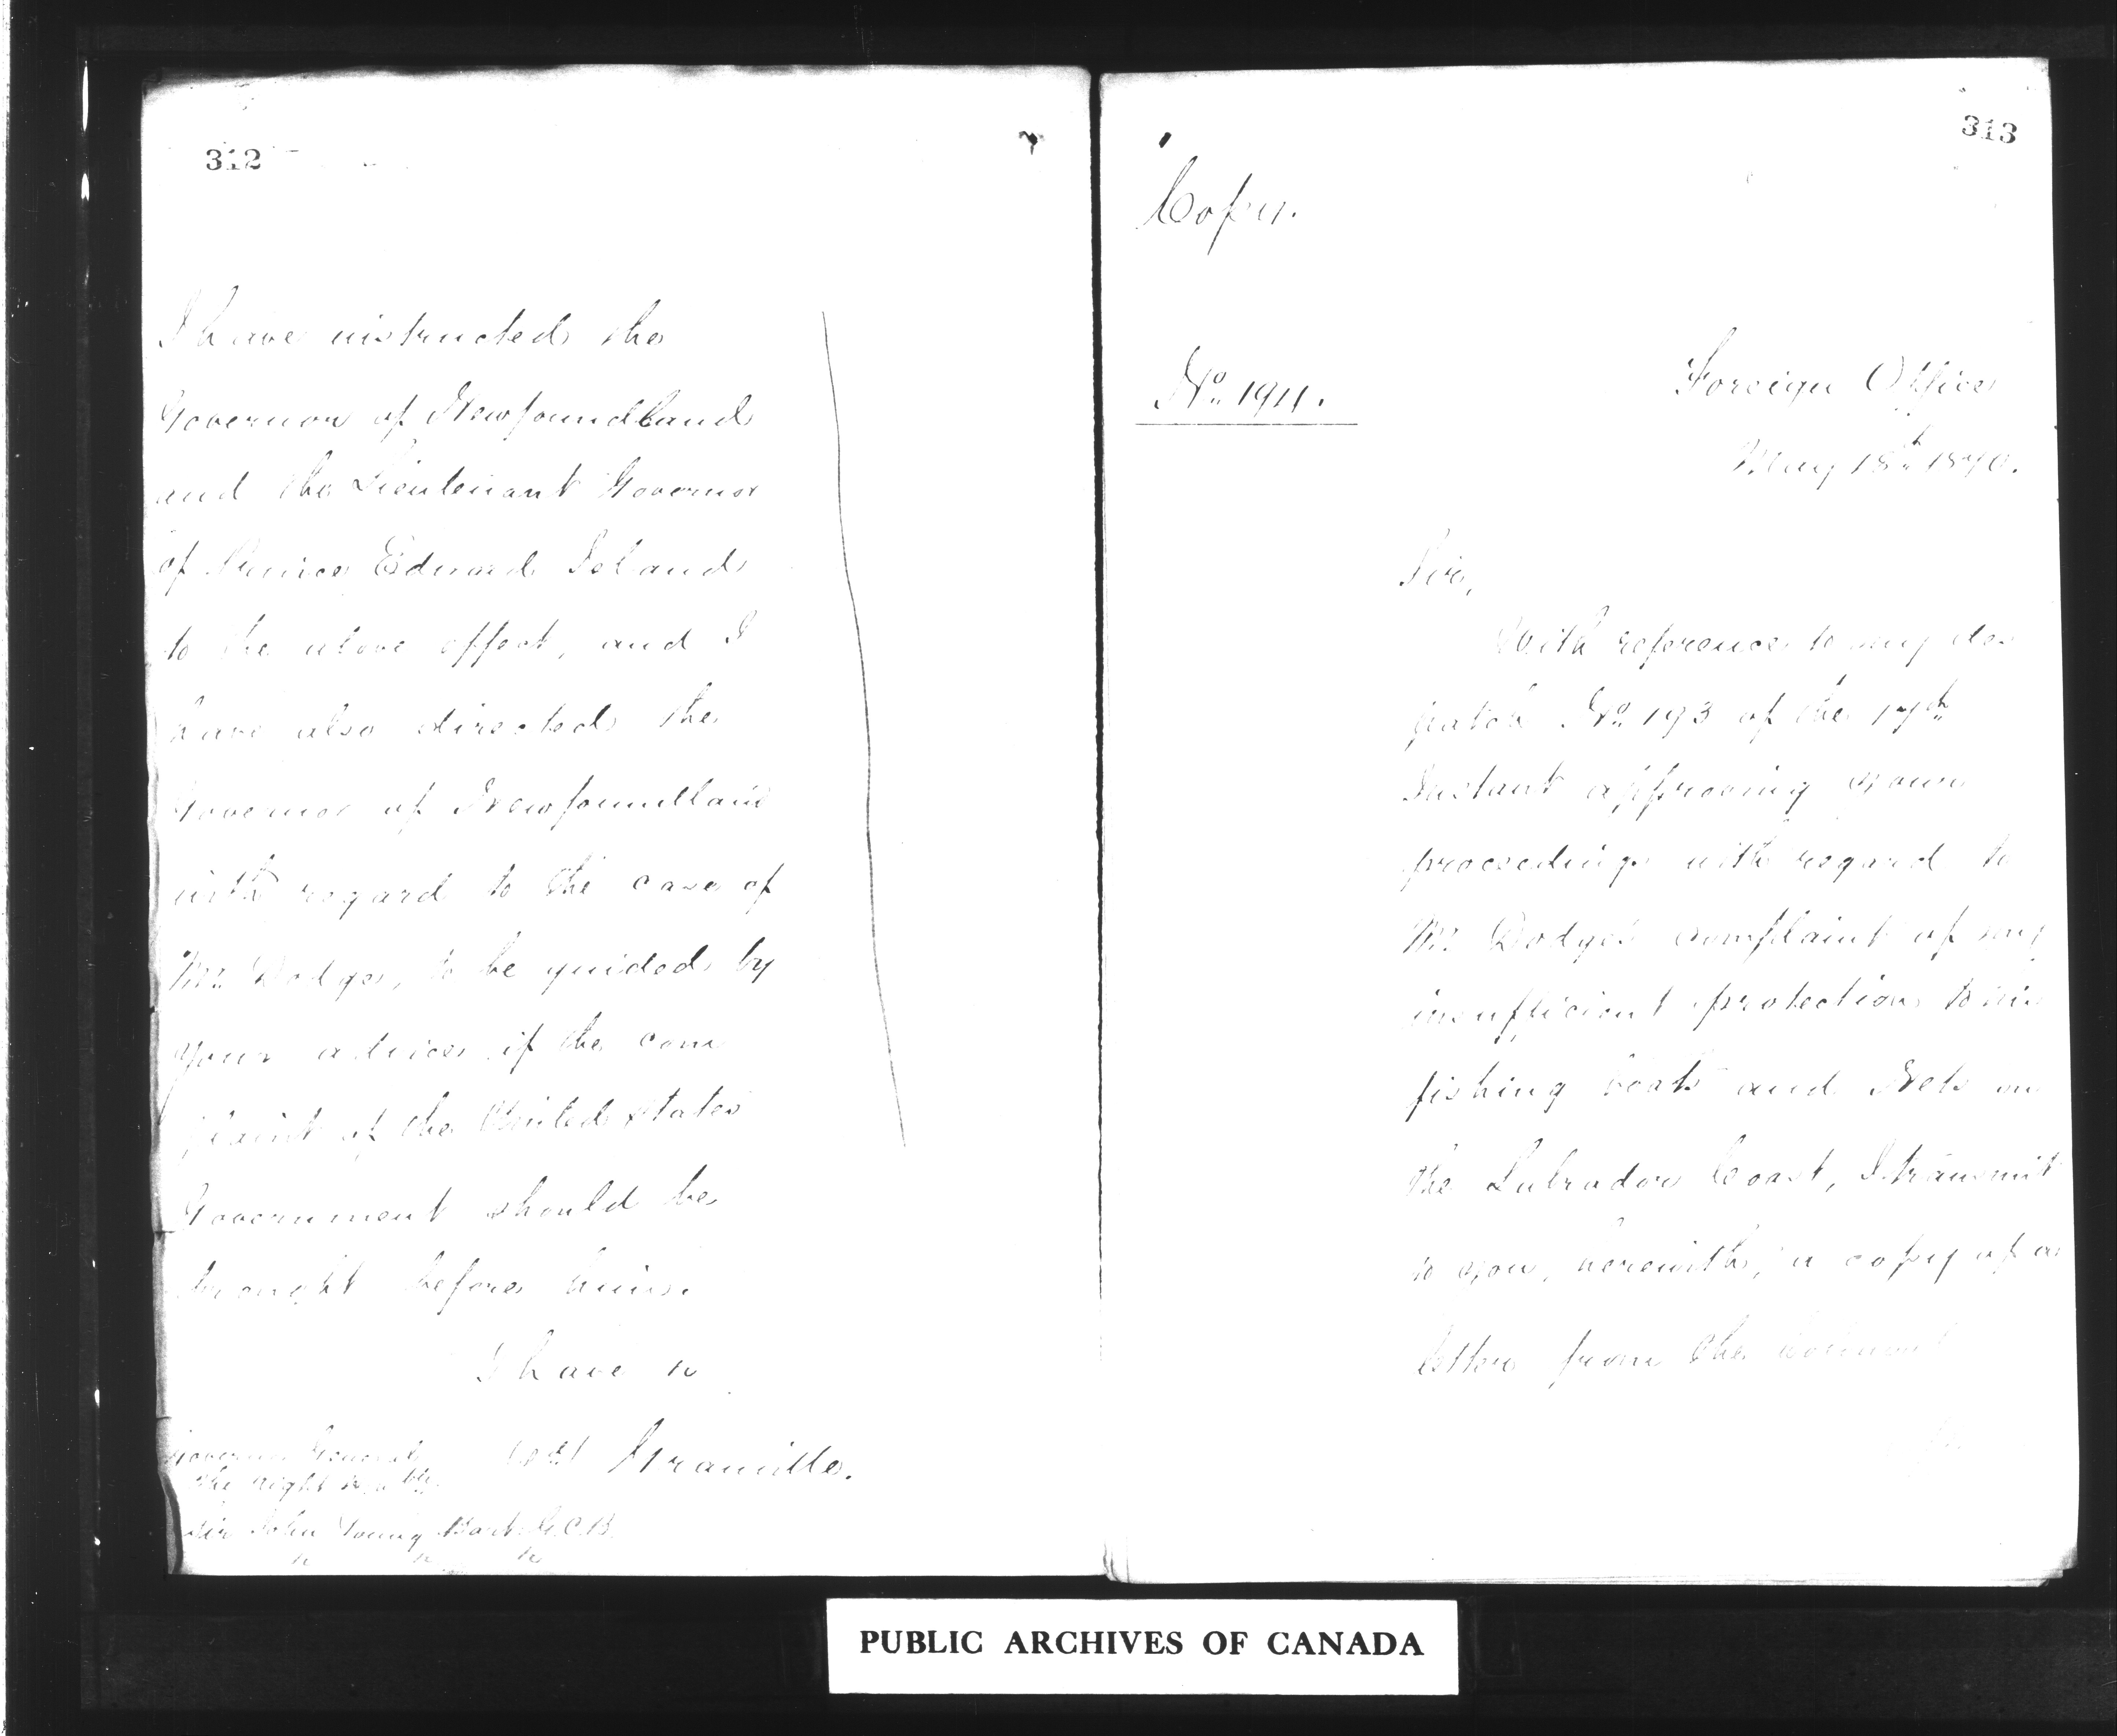 312
I have instructed the
Governor of Newfoundland
and the Lieutenant Governor
of Prince Edward Island
to the above effect, and I
have also directed the
Governor of Newfoundland
with regard to the case of
Mr. Dodge, to be guided by
your advice if the com
plaint of the United States
Government should be
brought before him.
I have &c
Granville.
Governor General
The Right Honble
Sir John Young Bart G.C.B.
&c &c &c
313
Copy.
No. 194.
Foreign Office
May 18th 1870.
Sir,
With reference to my des
patch No. 193 of the 17th
Instant approving your
proceedings with regard to
Mr. Dodge's complaint of
insufficient protection to his
fishing boats and Nets on
the Labrador Coast, I transmit
to you, herewith, a copy of a
letter from the Colonial
PUBLIC ARCHIVES OF CANADA